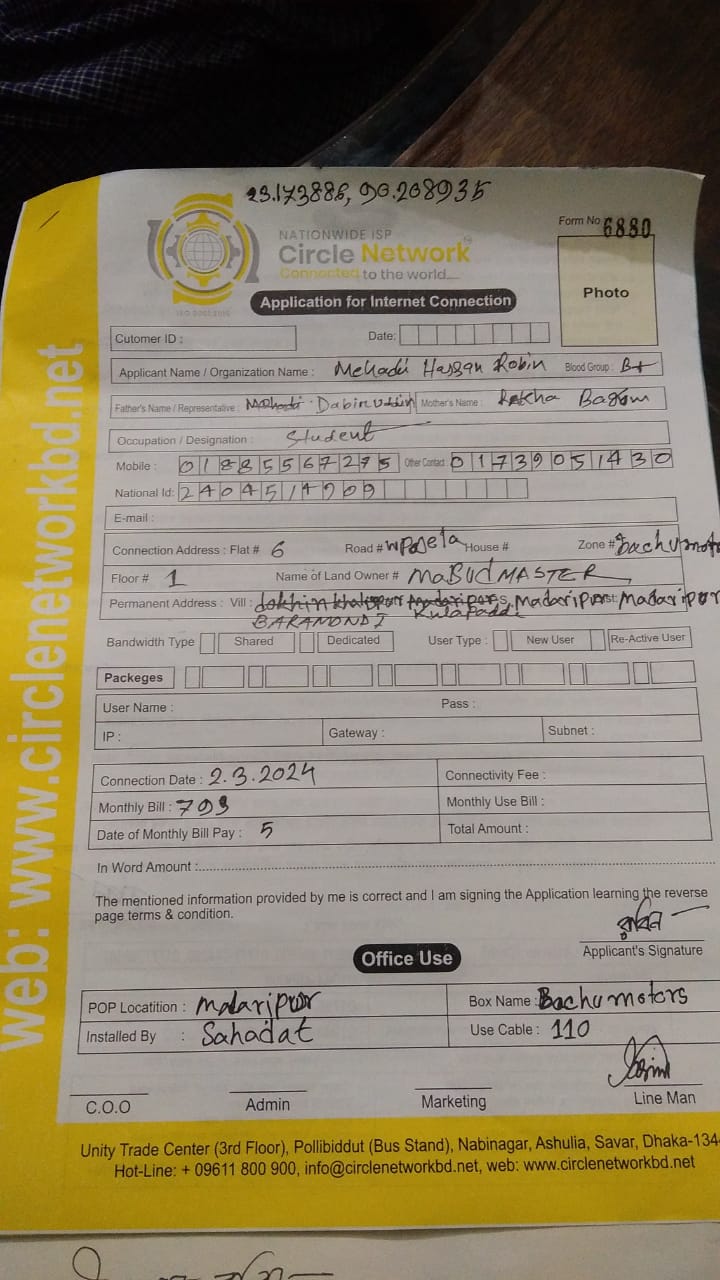 23.173886, 90.208935
NATIONWIDE ISP
Circle Network
Connected to the world....
ISO 9001:2015
Form No. 6880
Photo
Application for Internet Connection
Cutomer ID :
Date:
Applicant Name / Organization Name : Mehadi Hassan Robin Blood Group : B+
Father's Name / Representative : Dabir Uddin Mother's Name : Rekha Bagom
Occupation / Designation : Student
Mobile : 01885567275 Other Contact 01739051430
National Id: 2404514909
E-mail :
Connection Address : Flat # 6 Road # House # Zone # Bachu moto
Floor # 1 Name of Land Owner # MaBUd MASTER
Permanent Address : Vill : Madaripur Dist: Madaripur
BARAMONDI Kulapaddi
Bandwidth Type Shared Dedicated User Type : New User Re-Active User
Packeges
User Name : Pass :
IP : Gateway : Subnet :
Connection Date : 2.3.2024 Connectivity Fee :
Monthly Bill : 793 Monthly Use Bill :
Date of Monthly Bill Pay : 5 Total Amount :
In Word Amount :
The mentioned information provided by me is correct and I am signing the Application learning the reverse
page terms & condition.
রবিন
Applicant's Signature
Office Use
POP Locatition : Madaripur Box Name : Bachu motors
Installed By : Sahadat Use Cable : 110
C.O.O Admin Marketing Line Man
Unity Trade Center (3rd Floor), Pollibiddut (Bus Stand), Nabinagar, Ashulia, Savar, Dhaka-134
Hot-Line: + 09611 800 900, info@circlenetworkbd.net, web: www.circlenetworkbd.net
web: www.circlenetworkbd.net